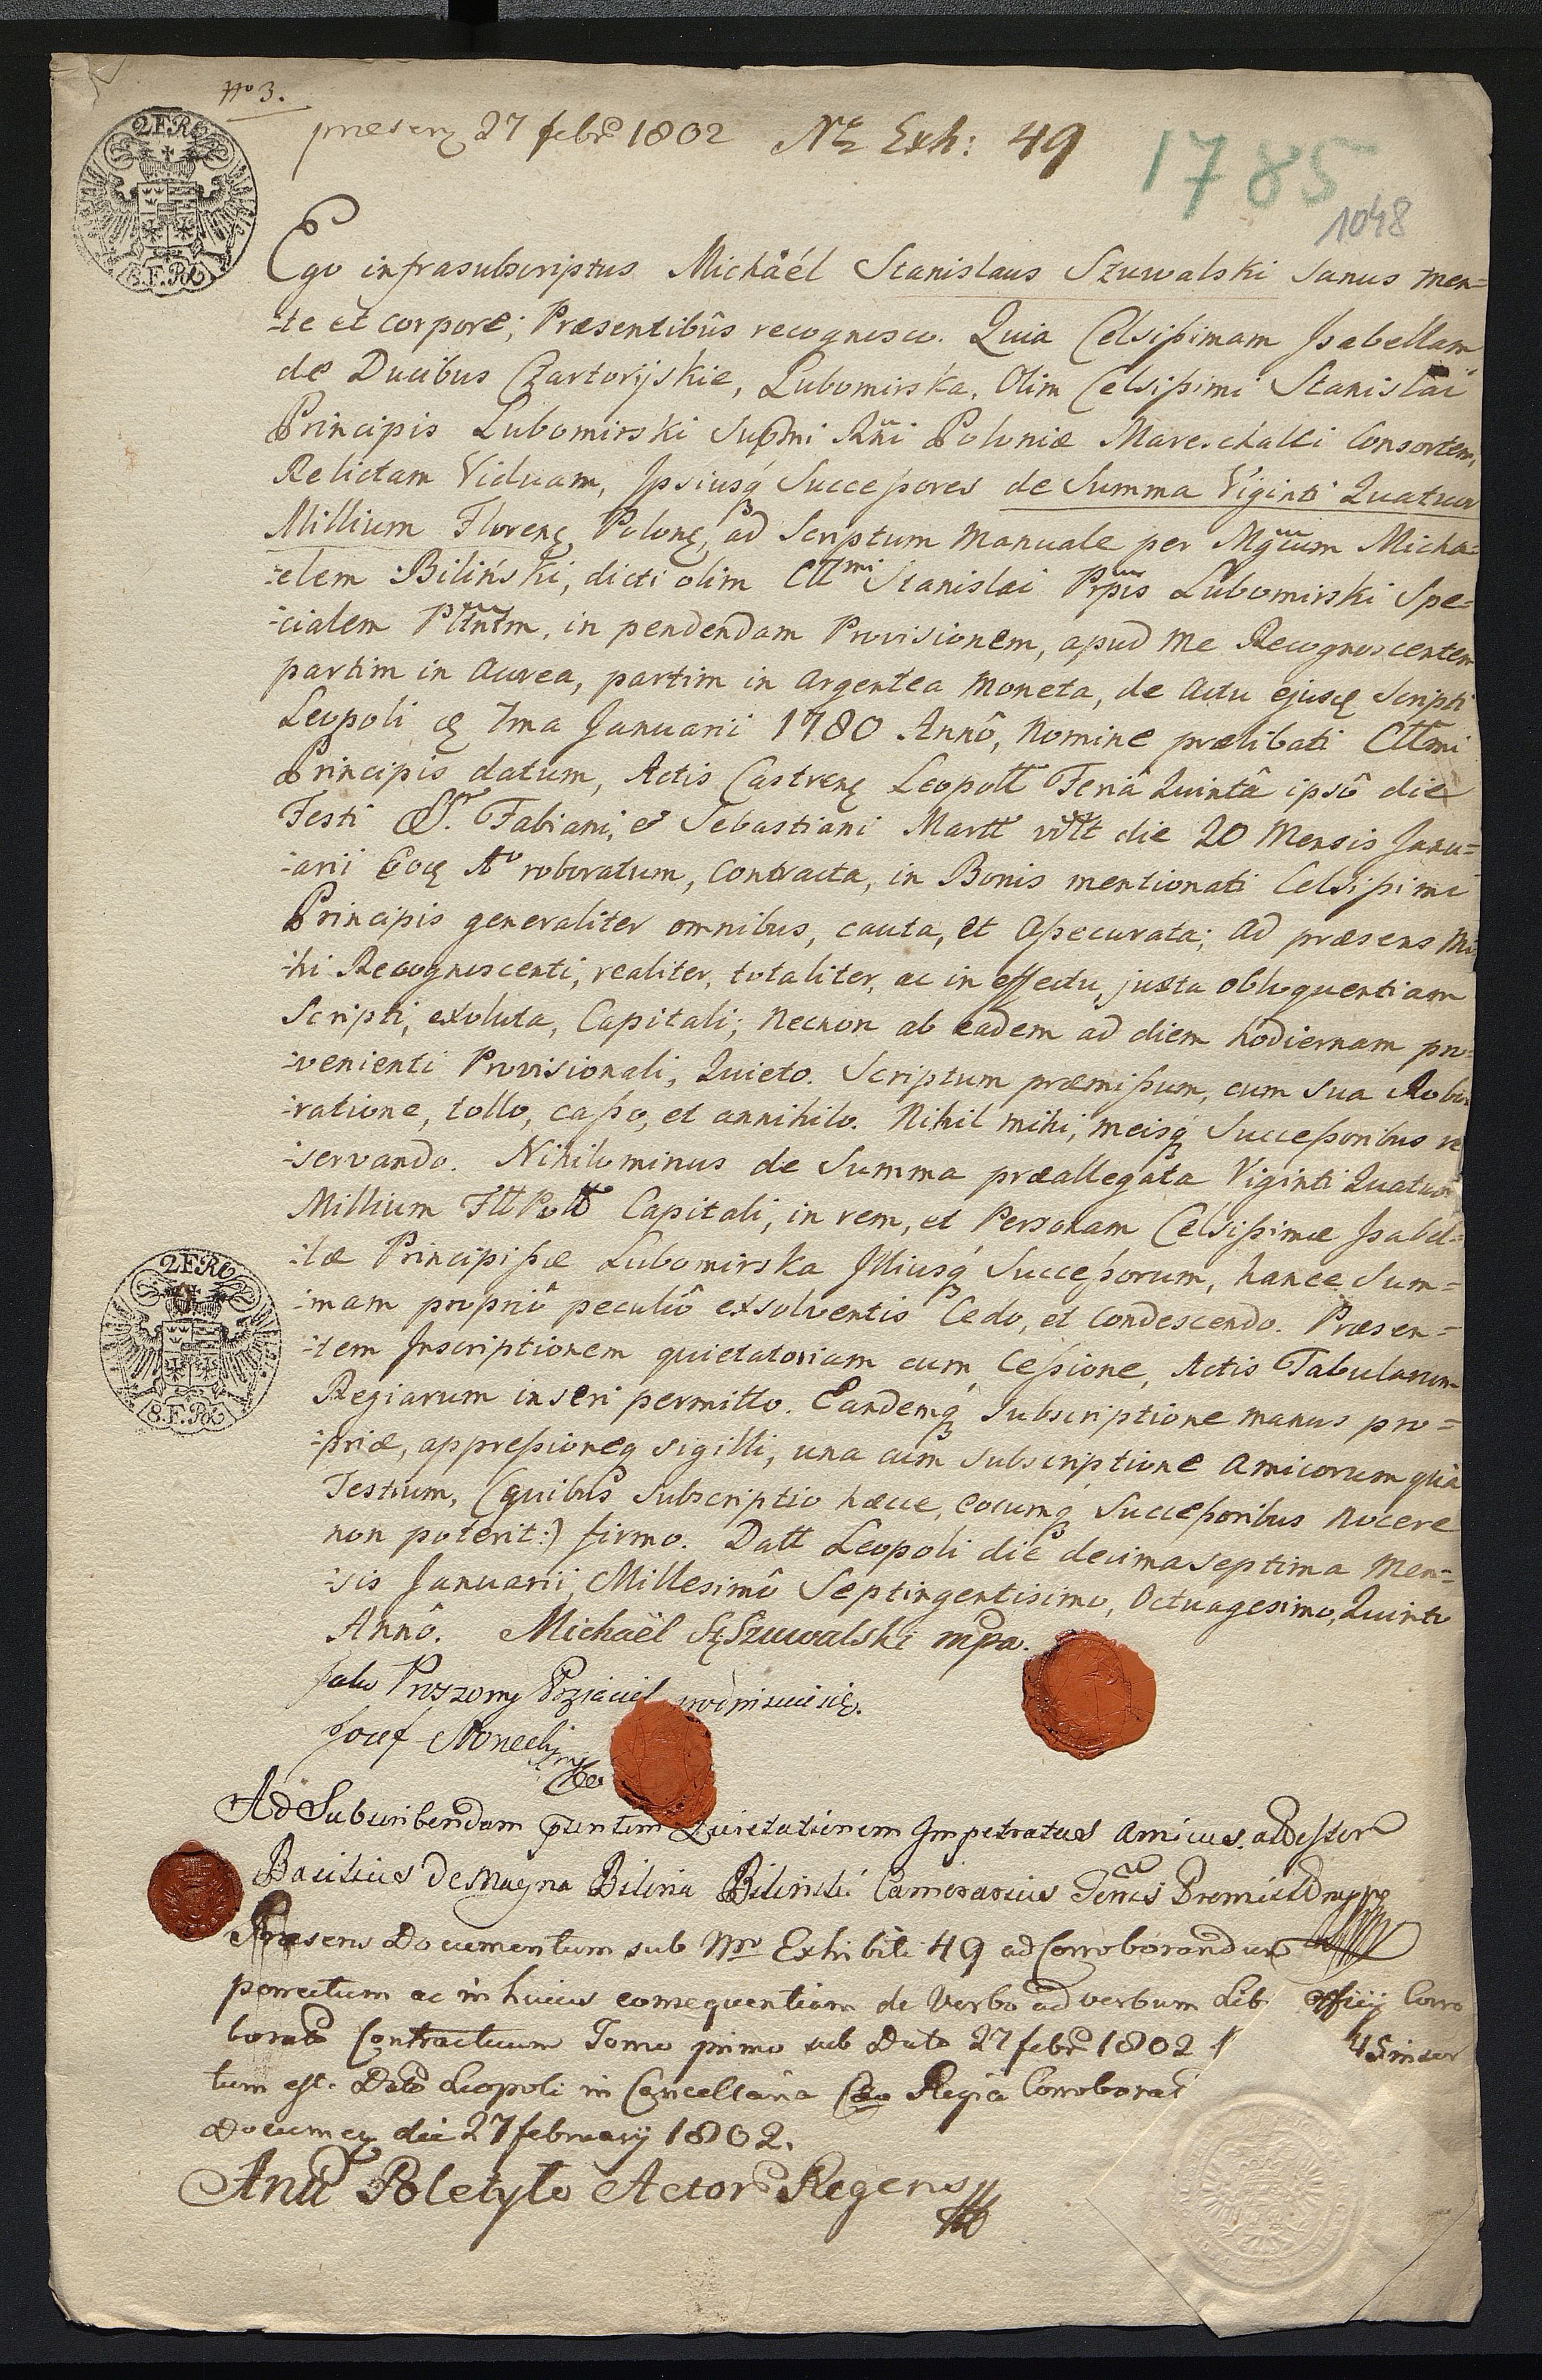 No 3.
præsen 27 febr 1802 Nr Exh: 49
1785
1048
2.F.R
8.F.R
Ego infrasubscriptus Michaël Stanislaus Szuwalski sanus men=
-te et corpore; Præsentibûs recognosco. Quia Celsißimam Isabellam
de Ducibus Czartoryskie, Lubomirska, Olim Celsißimi Stanislai
Principis Lubomirski Supmi Rni Poloniæ Mareschalci Consortem,
Relictam Viduam, Ipsiusq Succeßores de Summa Viginti Quatuor
Millium Floren Polon, ad Scriptum Manuale per Mgcum Micha=
-elem Biliński, dicti olim Cttmi Stanislai Prpis Lubomirski Spe=
-cialem Pttntm, in pendendam Provisionem, apud Me Recognoscentem
partim in Aurea, partim in Argentea Moneta, de Actu ejusd Scripti
Leopoli d 7ma Januarii 1780 Annô, Nomine prælibati Cttmi
Principis datum, Actis Castren Leopoltt Feriâ Quintâ ipsô die
Festi SS. Fabiani, et Sebastiani Martt vdtt die 20 Mensis Janu=
-arii Eod Ao roboratum, Contracta, in Bonis mentionati Celsißimi
Principis generaliter omnibus, cauta, et Aßecurata; ad præsens Mi
-hi Recognoscenti, realiter, totaliter, ac in effectu, juxta obloquentiam
Scripti, exoluta, Capitali; Necnon ab eadem ad diem hodiernam pro=
-venienti Provisionali, Quieto. Scriptum præmißum, cum sua Robo
-ratione, tollo, caßo, et annihilo. Nihil mihi, meisq Succeßoribus re
-servando. Nihilominus de Summa præallegata Viginti Quatuor
Millium Ftt Poltt Capitali, in rem, et Personam Celsißimæ Isabel=
-læ Principißæ Lubomirska Illiusq Succeßorum, hance Sum=
-mam propriô peculiô exsolventis Cedo, et Condescendo. Præsen=
2.F.R
8.F.R
-tem Inscriptionem quietatoriam cum Ceßione, Actis Tabularum
Regiarum inseri permitto. Eandemq Subscriptione manus pro=
-priæ, appreßioneq sigilli, una cum subscriptione Amicorum quà
Testium, (quibus Subscriptio hæcce, eorumq Succeßoribus nocere
non poterit:) firmo. Datt Leopoli die decima septima Men=
-sis Januarii, Millesimô Septingentisimo, Octuagesimo, Quinto
Annô. Michaël St Szuwalski mpa.
Jako Proszony Przyiaciel podpisuie się.
Josef
Ad Subscribendam pntem Quietationem Impetratus Amicus adestor
Basilius De Magna Bilina Biliński Camerarius Terrs Premisl
Præsens Documentum sub Nro Exhibiti 49 ad Corroborandum
porrectum ac in huius consequentiam de Verbo ad verbum Lib officij Corro
borat Contractuum Tomo primo sub Dato 27 febr 1802 45 inser
tum est. Dato Leopoli in Cancellaria Cæo Regia Corroborat
Documen die 27 february 1802.
Poletyło Actor Regens